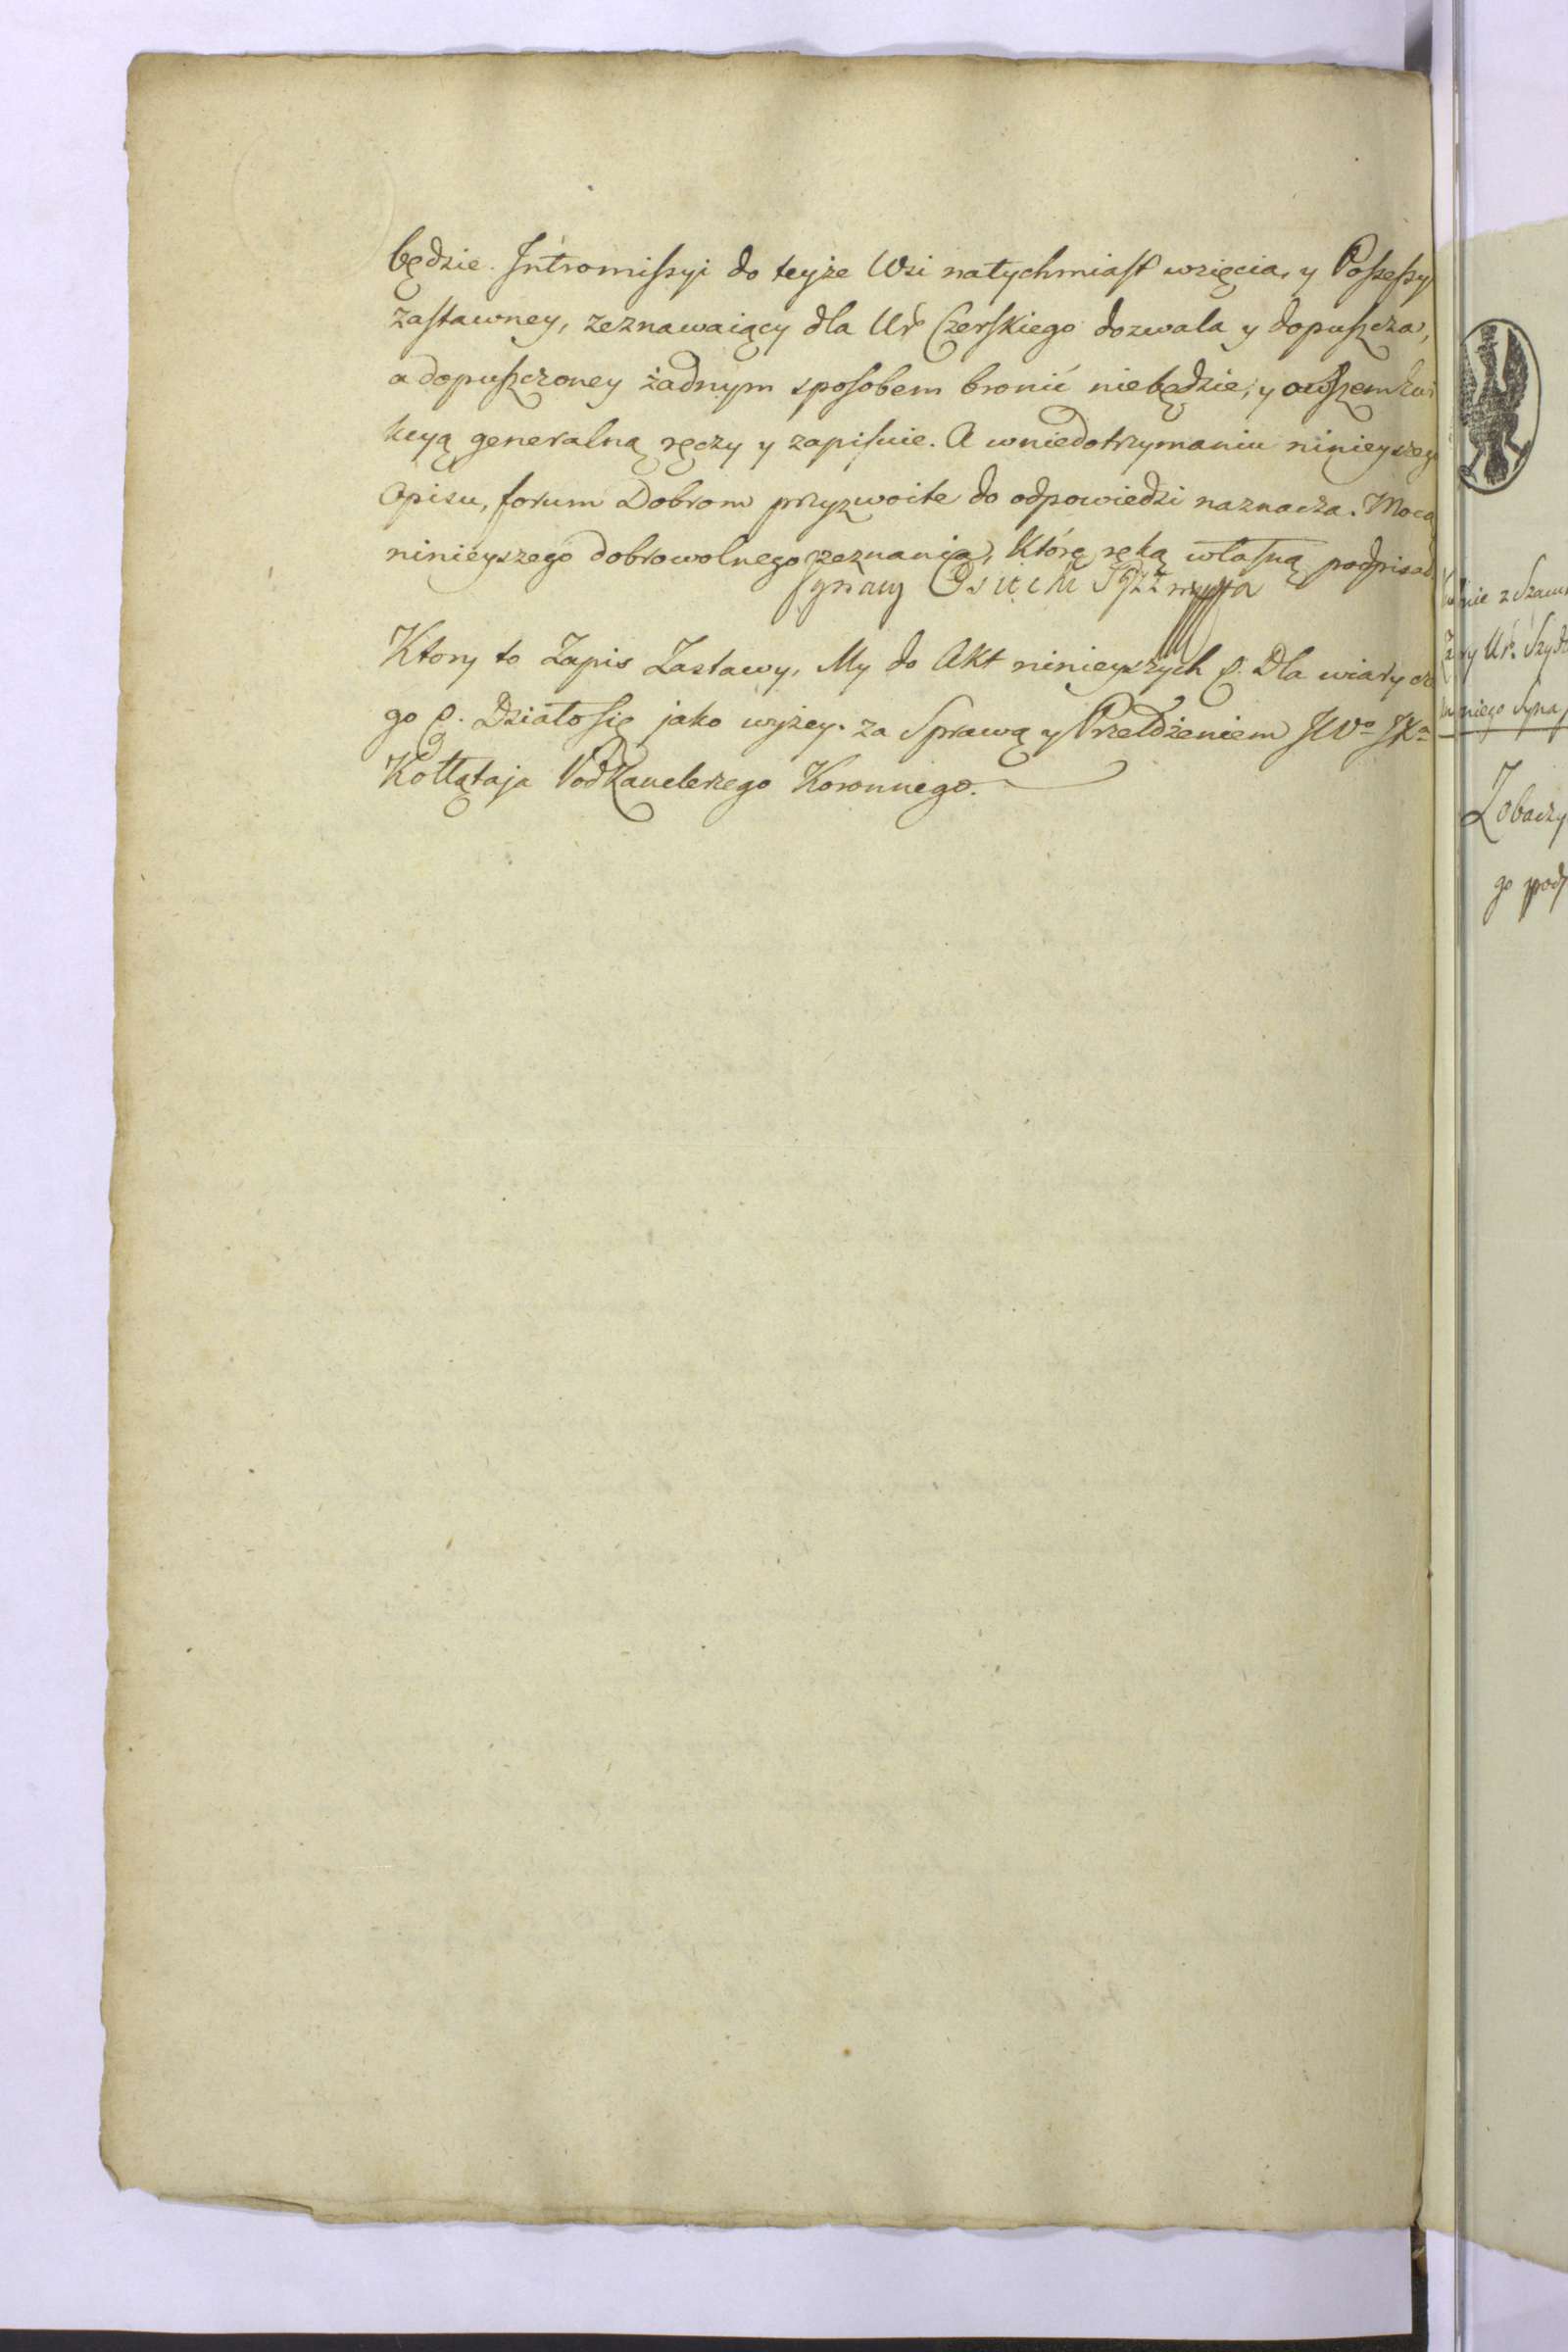 będzie. Intromissyi do teyże Wsi natychmiast wzięcia, y Possessyi
zastawney, zeznawaiący dla Ur. Czerskiego dozwala y dopuszcza,
a dopuszczoney żadnym sposobem bronić niebędzie, y owszem Ewi
kcyą generalną ręczy y zapisuie. A wniedotrzymaniu ninieyszeg
Opisu, forum Dobrom przyzwoite do odpowiedzi naznacza. Mocą
ninieyszego dobrowolnego zeznania, które ręką własną podpisał
Ignacy
Ktory to Zapis Zastawy, My do Akt ninieyszych p. Dla wiary cze
go p. Działo się jako wyżey. za Sprawą y Przełożeniem JWo JXa
Kołłątaja PodKanclerzego Koronnego.
nie z Szam
ry Ur. Szydł
niego Syna
Zobaczy
go pod